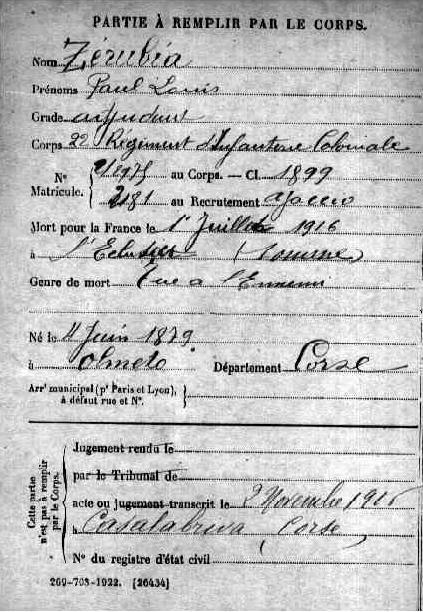 PARTIE À REMPLIR PAR LE CORPS.
Nom Zérubia
Prénoms Paul Louis
Grade adjudant
Corps 22 Régiment d'Infanterie Coloniale
N° Matricule. { au Corps. — Cl. 1899
2181 au Recrutement Ajaccio
Mort pour la France le 1r Juillet 1916
à l'Eclusier (Somme)
Genre de mort Tué à l'Ennemi
Né le 11 Juin 1879
à Olmeto Département Corse
Arrt municipal (pr Paris et Lyon), à défaut rue et N°. }
Cette partie n'est pas à remplir par le Corps. {
Jugement rendu le
par le Tribunal de
acte ou jugement transcrit le 2 Novembre 1916
à Casalabriva (Corse)
N° du registre d'état civil
269-708-1922. [26434]